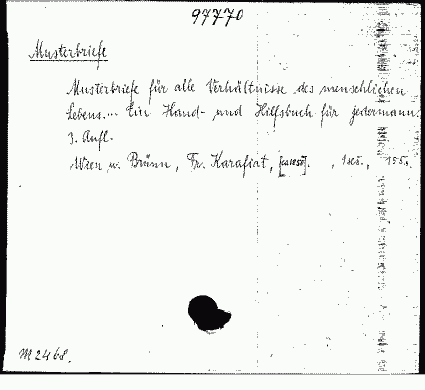 97770
Musterbriefe
Musterbriefe für alle Verhältnisse des menschlichen
Lebens... Ein Hand- und Hilfsbuch für jedermann.
3. Aufl.
Wien u. Brünn, Fr. Karafiat, 155.
M 2468.